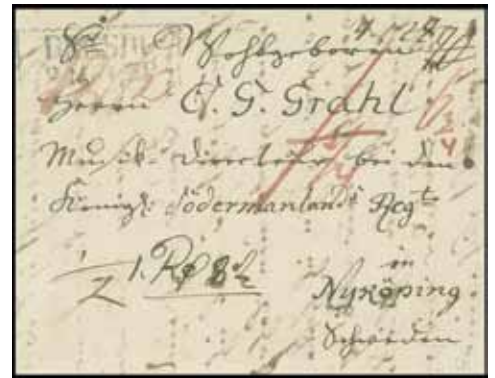 Sr Wohlgeboren
Herrn C. G. Grahl
Musik-Director bei dem
Königl: Södermanlands Regt
1. R
in
Nyköping
Schweden